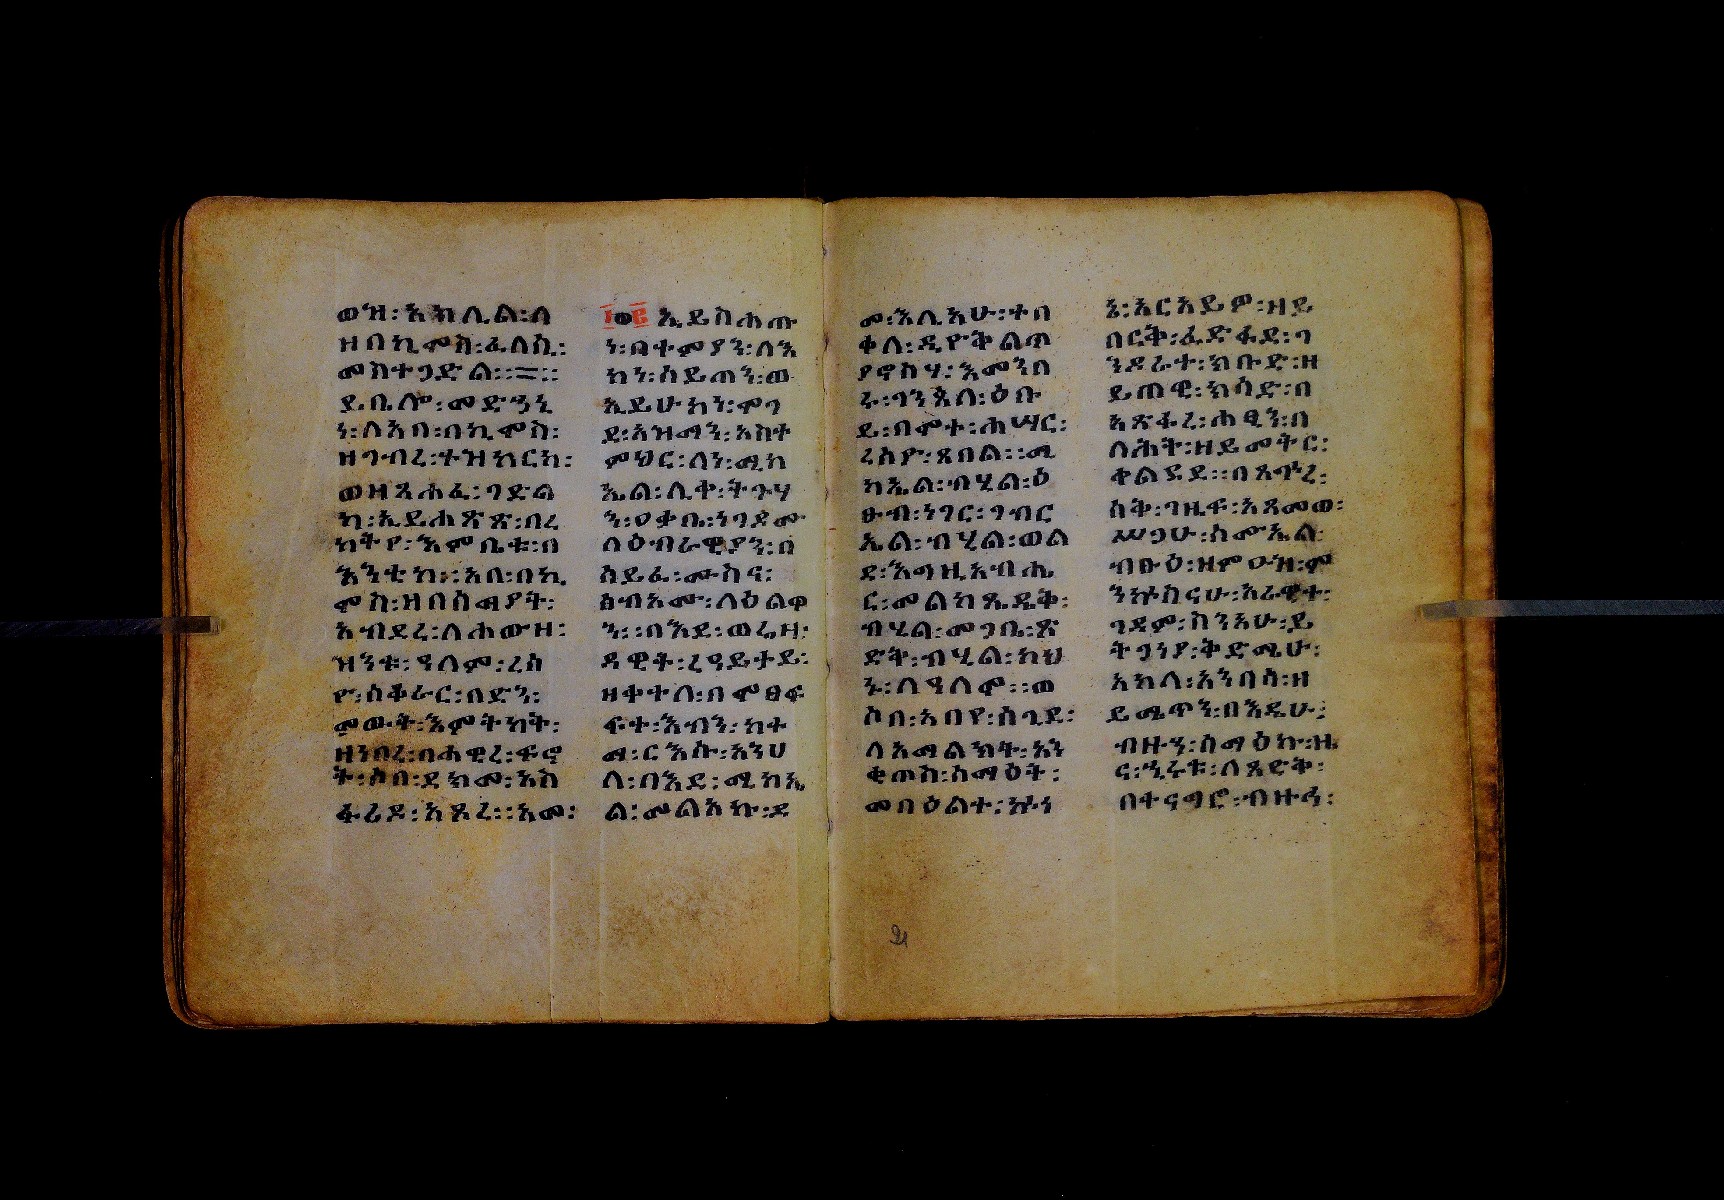 ወዝ፡አክሊል፡ለ
ዘበኪሞስ፡ፈለሲ፡
መስተጋድል።=።
ይቤሎ፡መድኃኒ
ነ፡ለአበ፡በኪሞስ፡
ዘገብረ፡ተዝካርከ፡
ወዘጸሐፈ፡ገድል
ከ፡ኢይሐጽጽ፡በረ
ከትየ፡እምቤቱ፡በ
እንቲከ።አበ፡በኪ
ሞስ፡ዘበስማያት፡
አብደረ፡ለሐውዘ፡
ዝንቱ፡ዓለም፡ረስ
ዮ፡ስቆራር፡በድን፡
መውት፡እምትካት፡
ዘንበረ፡በሐዊረ፡ፍኖ
ት፡ሶበ፡ደክመ፡አስ
ፋሪዶ፡አጾረ።አመ፡
፲ወ፪ ኢይስሐጡ
ነ፡በተምያን፡ለእ
ከነ፡ሰይጠን፡ወ
ኢይሁከነ፡ሞገ
ደ፡አዝማን፡አስተ
ምህር፡ለነ፡ሚካ
ኤል፡ሊቀ፡ትጉሃ
ን፡ዐቃቤ፡ነገዶሙ
ለዕብራዊያን፡በ
ሰይፈ፡ሙስና፡
ፀብአሙ፡ለዕልዋ
ን።በእደ፡ወሬዛ፡
ዳዊት፡ረዓይታይ፡
ዘቀተለ፡በሞፀፍ
ፍተ፡እብን፡ከተ
ማ፡ርእሱ፡አንሀ
ለ፡በእደ፡ሚካኤ
ል፡መልአኩ፡ደ
መ፡እሊአሁ፡ተበ
ቀለ፡ዲዮቅልጥ
ያኖስሃ፡እመንበ
ሩ፡ገንጸለ፡ዕቡ
ይ፡በሞተ፡ሐሣር፡
ረስዮ፡ጸበል።ሚ
ካኤል፡ብሂል፡ዕ
ፁብ፡ነገር፡ገብር
ኤል፡ብሂል፡ወል
ደ፡እግዚአብሔ
ር፡መልከጼዴቅ፡
ብሂል፡መጋቤ፡ጽ
ድቅ፡ብሂል፡ከህ
ኑ፡ለዓለሞ።ወ
ሶበ፡አበየ፡ሰጊደ፡
ለአማልክት፡አን
ቂጦስ፡ሰማዕት፡
መበዕልተ፡ኵነ
ኔ፡አርአይም፡ዘይ
በርቅ፡ፈድፋደ፡ጎ
ንዶራተ፡ክቡድ፡ዘ
ይጠዊ፡ክሳድ፡በ
አጽፋረ፡ሐፂን፡በ
ለሕት፡ዘይመትር፡
ቀልደደ።በጸጕረ፡
ሰቅ፡ገዚፍ፡አጸመወ፡
ሥጋሁ፡ስሙኤል፡
ብፁዕ፡ዘምዑዝ፡ም
ንኵስናሁ፡አራዊተ፡
ገዳም፡ስንአሁ፡ይ
ትጋነያ፡ቅድሜሁ፡
አክለ፡አንበሳ፡ዘ
ይሜጥን፡በእዴሁ፡
ብዙኃ፡ሰማዕኩ፡ዜ
ና፡ኂሩቱ፡ለጻድቅ፡
በተናግሮ፡ብዙኃ፡
21